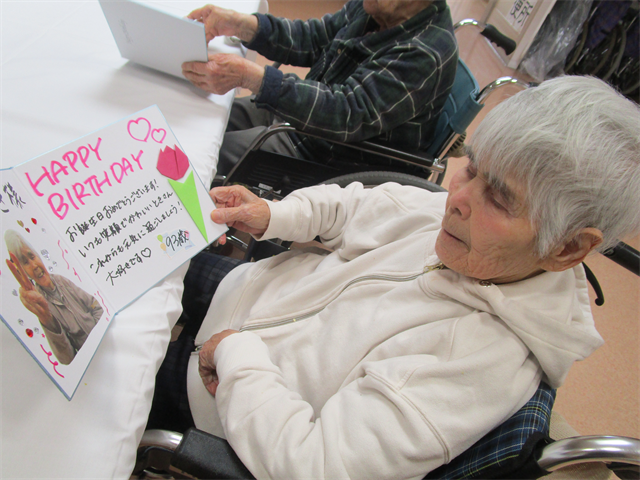 様
HAPPY
BIRTHDAY
お誕生日おめでとうございます!
いつも笑顔でかわいい
これからも元気に過ごしましょう!
大好きです♡
93歳